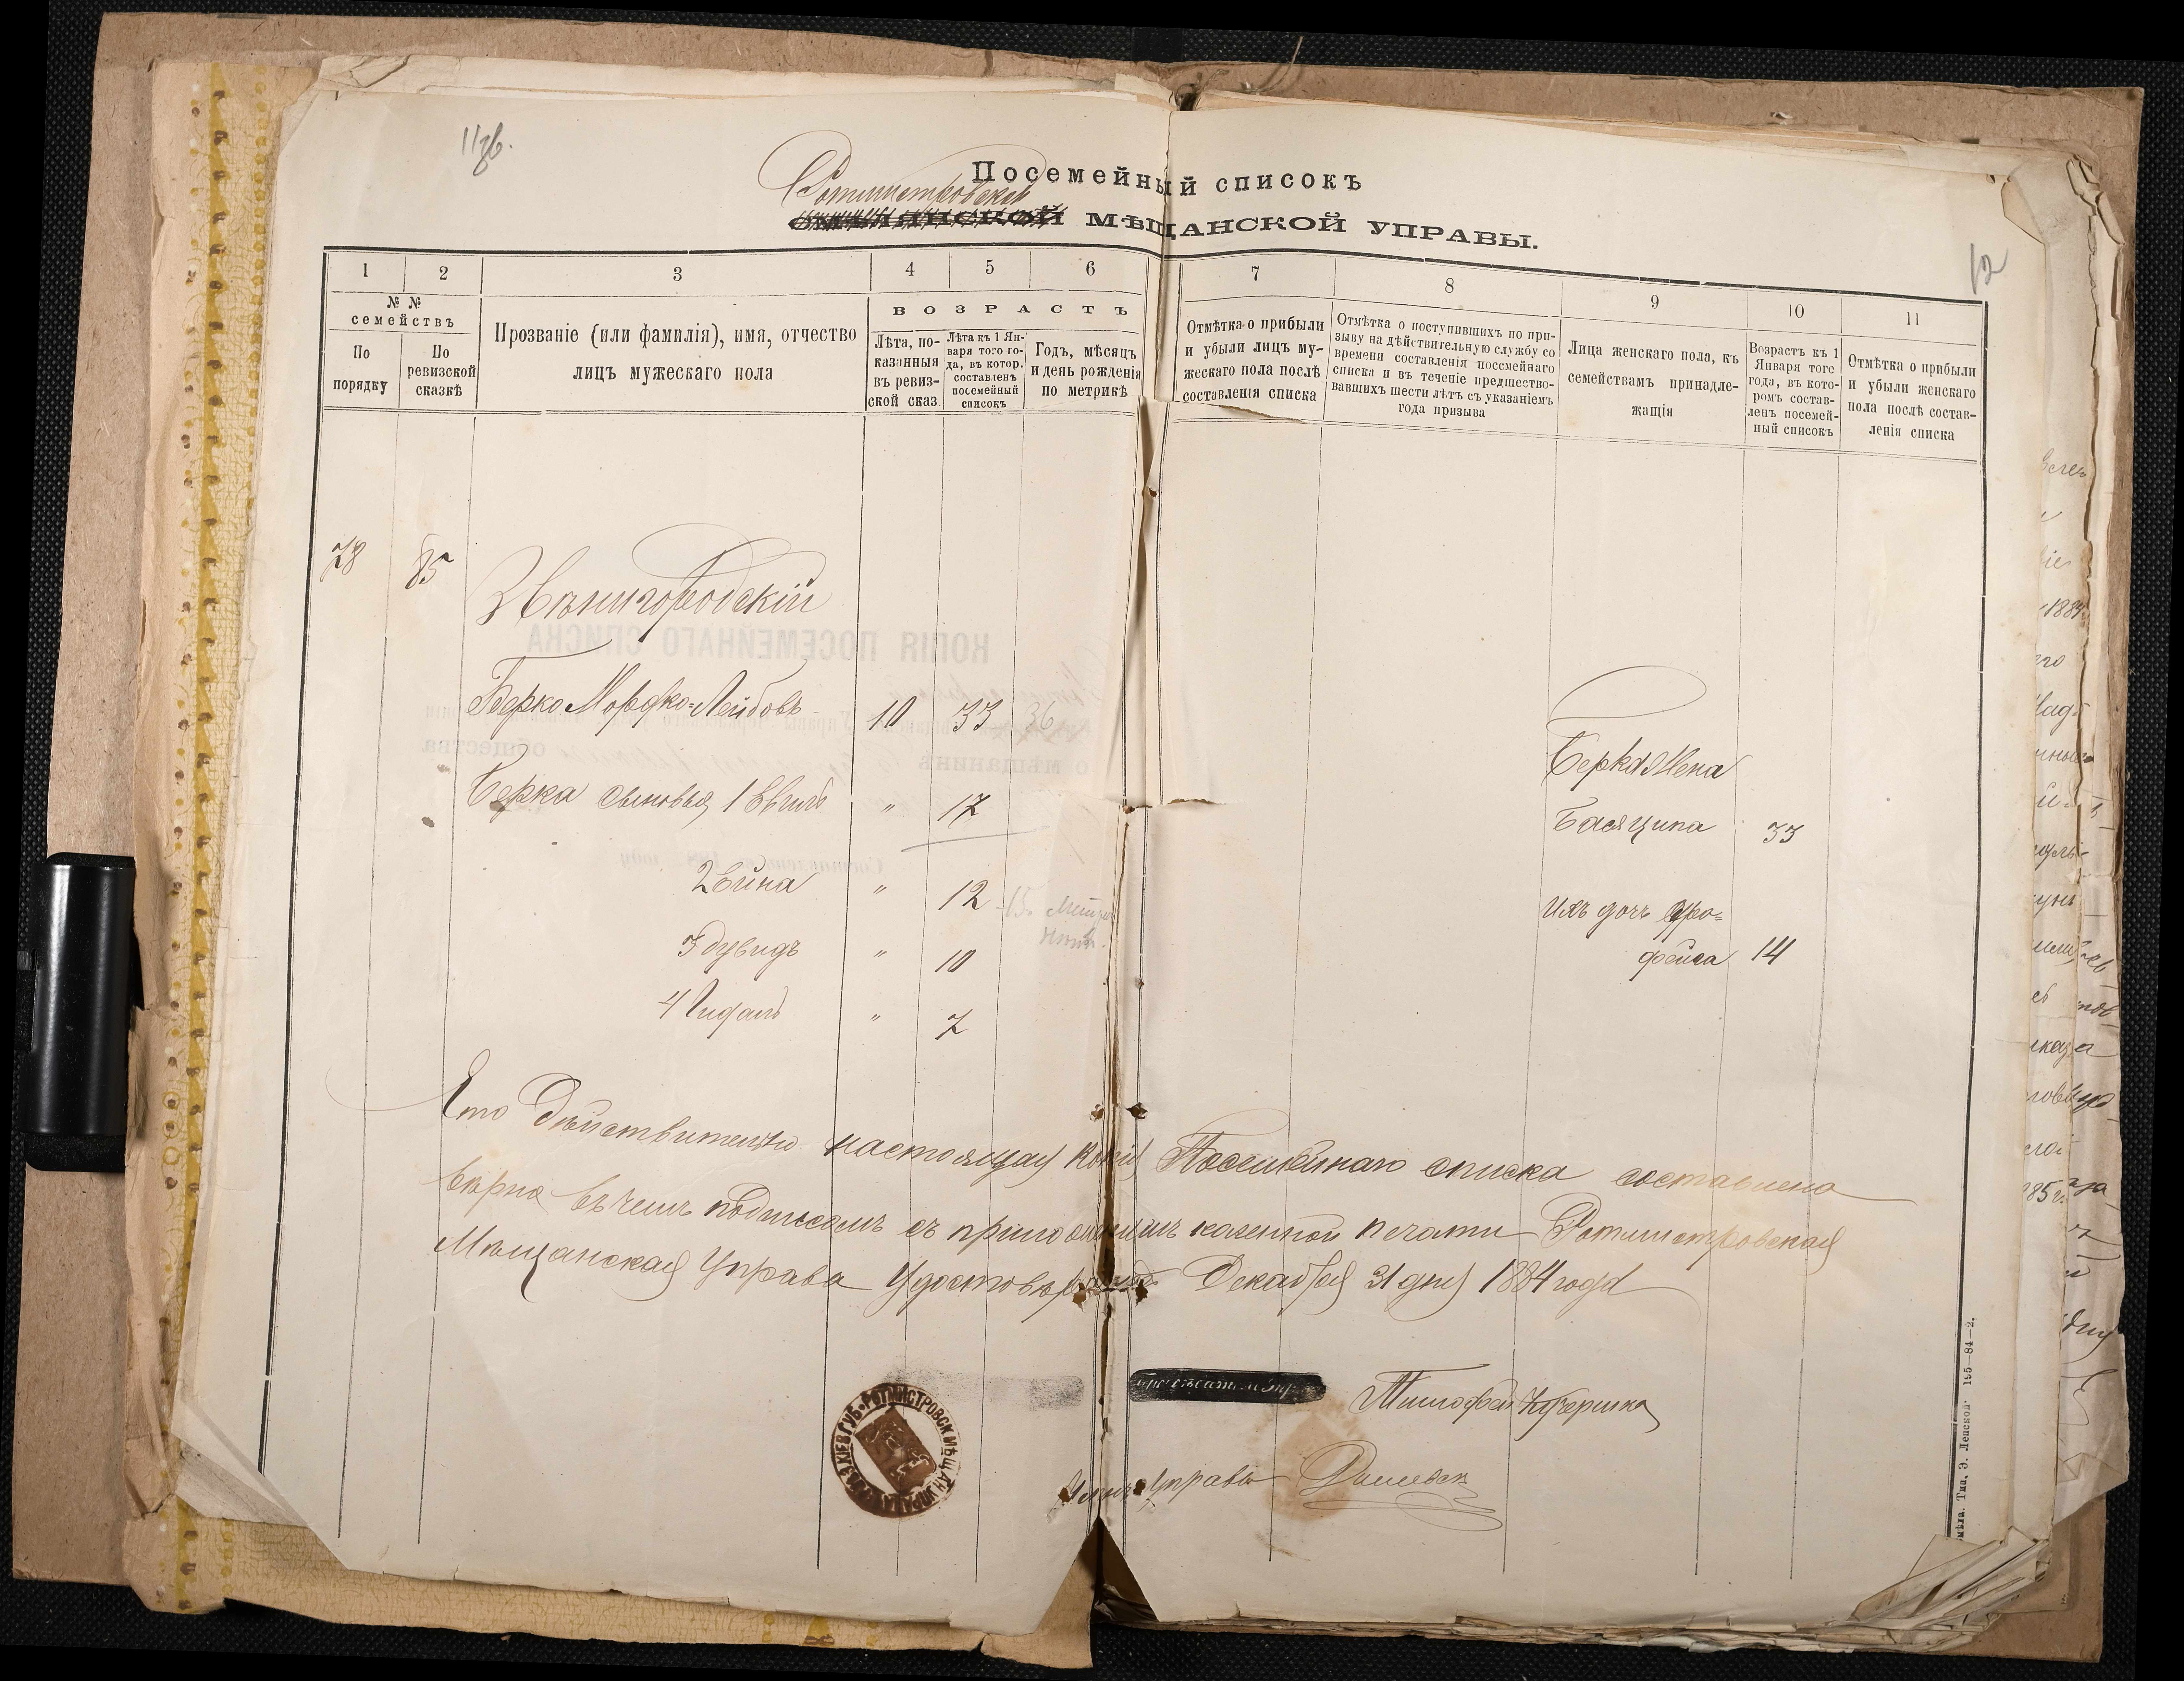 11зв.
Посемейный списокъ
Ротмистровской
МѢЩАНСКОЙ УПРАВЫ.
12
1 2 3 4 5 6 7 8 9 10 11
№ №
семействъ
По порядку
По ревизской сказкѣ
Прозваніе (или фамилія), имя, отчество
лицъ мужескаго пола
ВОЗРАСТЪ
Лѣта, показанныя въ ревизской сказ.
Лѣта къ 1 Января того года, въ котор. составленъ посемейный списокъ
Годъ, мѣсяцъ и день рожденія по метрикѣ
Отмѣтка о прибыли и убыли лицъ мужескаго пола послѣ составленія списка
Отмѣтка о поступившихъ по призыву на дѣйствительную службу со времени составленія посемейнаго списка и въ теченіе предшествовавшихъ шести лѣтъ съ указаніемъ года призыва
Лица женскаго пола, къ семействамъ принадлежащія
Возрастъ къ 1 Января того года, въ которомъ составленъ посемейный списокъ
Отмѣтка о прибыли и убыли женскаго пола послѣ составленія списка
78 85
Звѣнигородскій
Берко Мордко=Лейбовъ 10 33 36
Берка жена
Берка сыновья, 1 " 17
Бася 33
2 Ейна " 12 15.
Ихъ дочь Фро=
фейга 14
3 Дувидъ " 10
4 " 7
Что дѣйствительно настоящая копія Посемейнаго списка составлена
вѣрно въ чемъ подписомъ съ приложеніемъ казенной печати Ротмистровская
Мѣщанская Управа Удостовѣряетъ Декабря 31 дня 1884 года
РОТМИСТРОВСК МѢЩАН УПРАВА КІЕВ ГУБ
Тимофей
Управы
Тип. Э. Ленской 195—84—2.